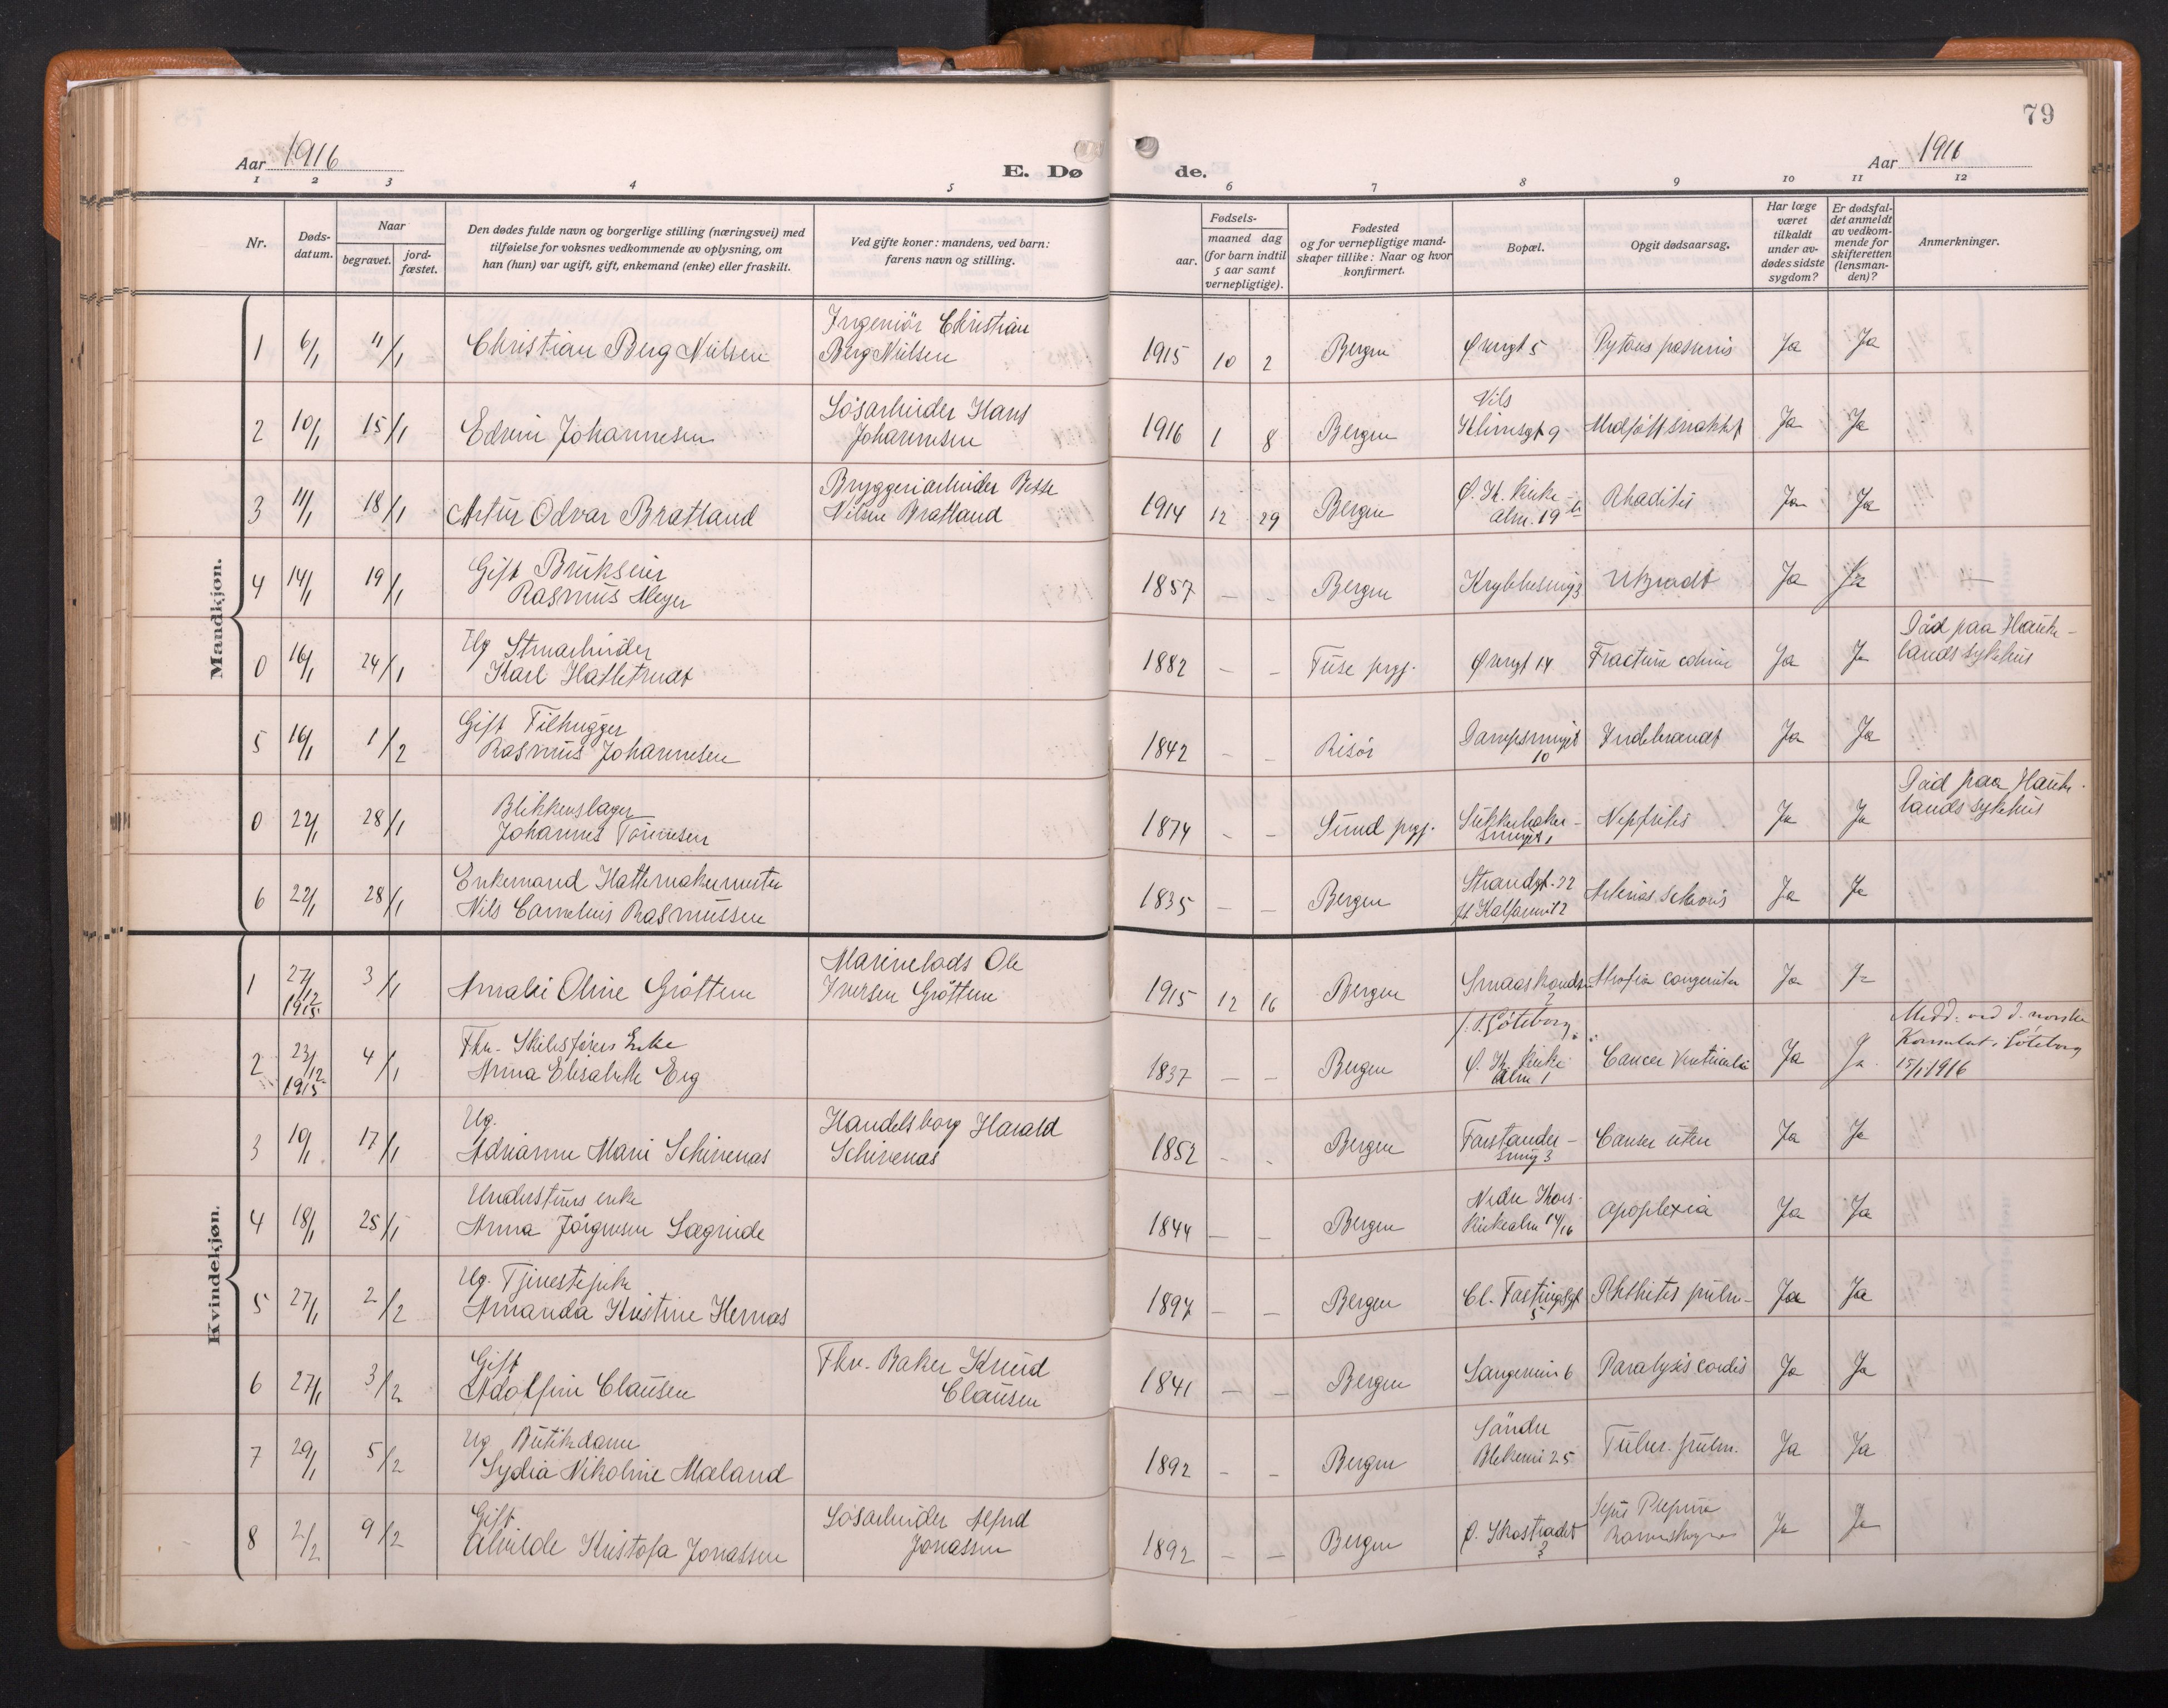 79
Aar 1916
E. Dø de.
Aar 1916
1 2 3 4 5 6 7 8 9 10 11 12
Nr.
Døds-
datum.
Naar
begravet.
jord-
fæstet.
Den dødes fulde navn og borgerlige stilling (næringsvei) med
tilføielse for voksnes vedkommende av oplysning, om
han (hun) var ugift, gift, enkemand (enke) eller fraskilt.
Ved gifte koner: mandens, ved barn:
farens navn og stilling.
Fødsels-
aar.
maaned dag
(for barn indtil
5 aar samt
vernepligtige).
Fødested
og for vernepligtige mand-
skaper tillike: Naar og hvor
konfirmert.
Bopæl.
Opgit dødsaarsag.
Har læge
været
tilkaldt
under av-
dødes sidste
sygdom?
Er dødsfal-
det anmeldt
av vedkom-
mende for
skifteretten
(lensman-
den)?
Anmerkninger.
Mandkjøn.
1 6/1 11/1 Christian Berg Nielsen
Ingeniør Christian
Berg Nielsen
1915 10 2 Bergen Øvregt 5 Ja Ja
2 10/1 15/1 Edvin Johannesen
Løsarbeider Hans
Johannesen
1916 1 8 Bergen
Nils
Klimsgt 9
Medfødt svakhet Ja Ja
3 11/1 18/1 Artur Odvar Bratland
Bryggeriarbeider Besse
Nilsen Bratland
1914 12 29 Bergen
Ø. K. Kirke-
alm. 19 b
Rhaditis Ja Ja
4 14/1 19/1
Gift Brukseier
Rasmus Meyer
1857 – – Bergen Krybbesmug 3 Ukjendt Ja Ja —
0 16/1 24/1
Ug Struarbeider
Karl Hatletvedt
1882 – – Fuse prgj. Øvregt 14 Fractura columna Ja Ja
Død paa Hauke-
lands sykehus
5 16/1 1/2
Gift Filhugger
Rasmus Johannesen
1842 – – Risør
Dampsmuget
10
Ja Ja
0 22/1 28/1
Blikkenslager
Johannes Tønnesen
1874 – – Sund prgj.
Sukkerhaker-
smuget 1
Nepfritis Ja Ja
Død paa Hauke-
lands sykehus
6 22/1 28/1
Enkemand Hattemakermester
Nils Cornelius Rasmussen
1835 – – Bergen
Strandgt. 22
Kalfarveien 2
Arterios. sclerosis Ja Ja
Kvindekjøn.
1 27/12 1915 3/1 Amalie Oline Grøttem
Marinelods Ole
Iversen Grøttem
1915 12 16 Bergen
Smaastrandsm
2
Atrofia congenita Ja Ja
2 23/12 1915 4/1
Fhv. Skibsførers Enke
Anna Elisabeth Erg
1837 – – Bergen
f. t. Göteborg
Ø. K. Kirke
alm 1
Cancer Ventriculi Ja Ja.
Medd. ved d. norske
Konsulat i Göteborg
15/1 1916
3 10/1 17/1
Ug.
Adrianne Marie Schivenas
Handelsborg Harald
Schivenas
1852 - - Bergen
Forstander-
smug 3
Cancer uteri Ja Ja
4 18/1 25/1
Understuers enke
Anna Jørgensen Sægrude
1844 – – Bergen
Nedre Kors-
kirkealm 14/16
apoplexia Ja Ja
5 27/1 2/2
Ug. Tjenestepike
Amanda Kristine Hernas
1897 – – Bergen
Cl. Fastingsgt
5
Phthitis pulm- Ja Ja
6 27/1 3/2
Gift
Adolfine Clausen
Fhv. Baker Knud
Clausen
1841 – – Bergen Langevei 6 Paralysis cordis Ja Ja
7 29/1 5/2
Ug Butikdame
Lydia Nikoline Mæland
1892 – – Bergen
Søndre
Blekevei 25
Tuber. pulm. Ja Ja
8 2/2 9/2
Gift
Alvilde Kristofa Jonassen
Løsarbeider Alfred
Jonassen
1892 – – Bergen
Ø. Skostredet
3
Ja Ja